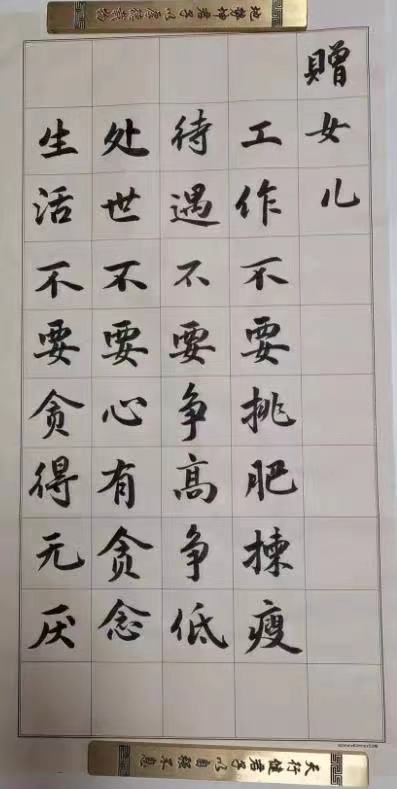 地势坤君子以厚德载物
贈女儿
工作不要挑肥揀瘦
待遇不要争高争低
处世不要心有贪念
生活不要贪得无厌
天行健君子以自强不息